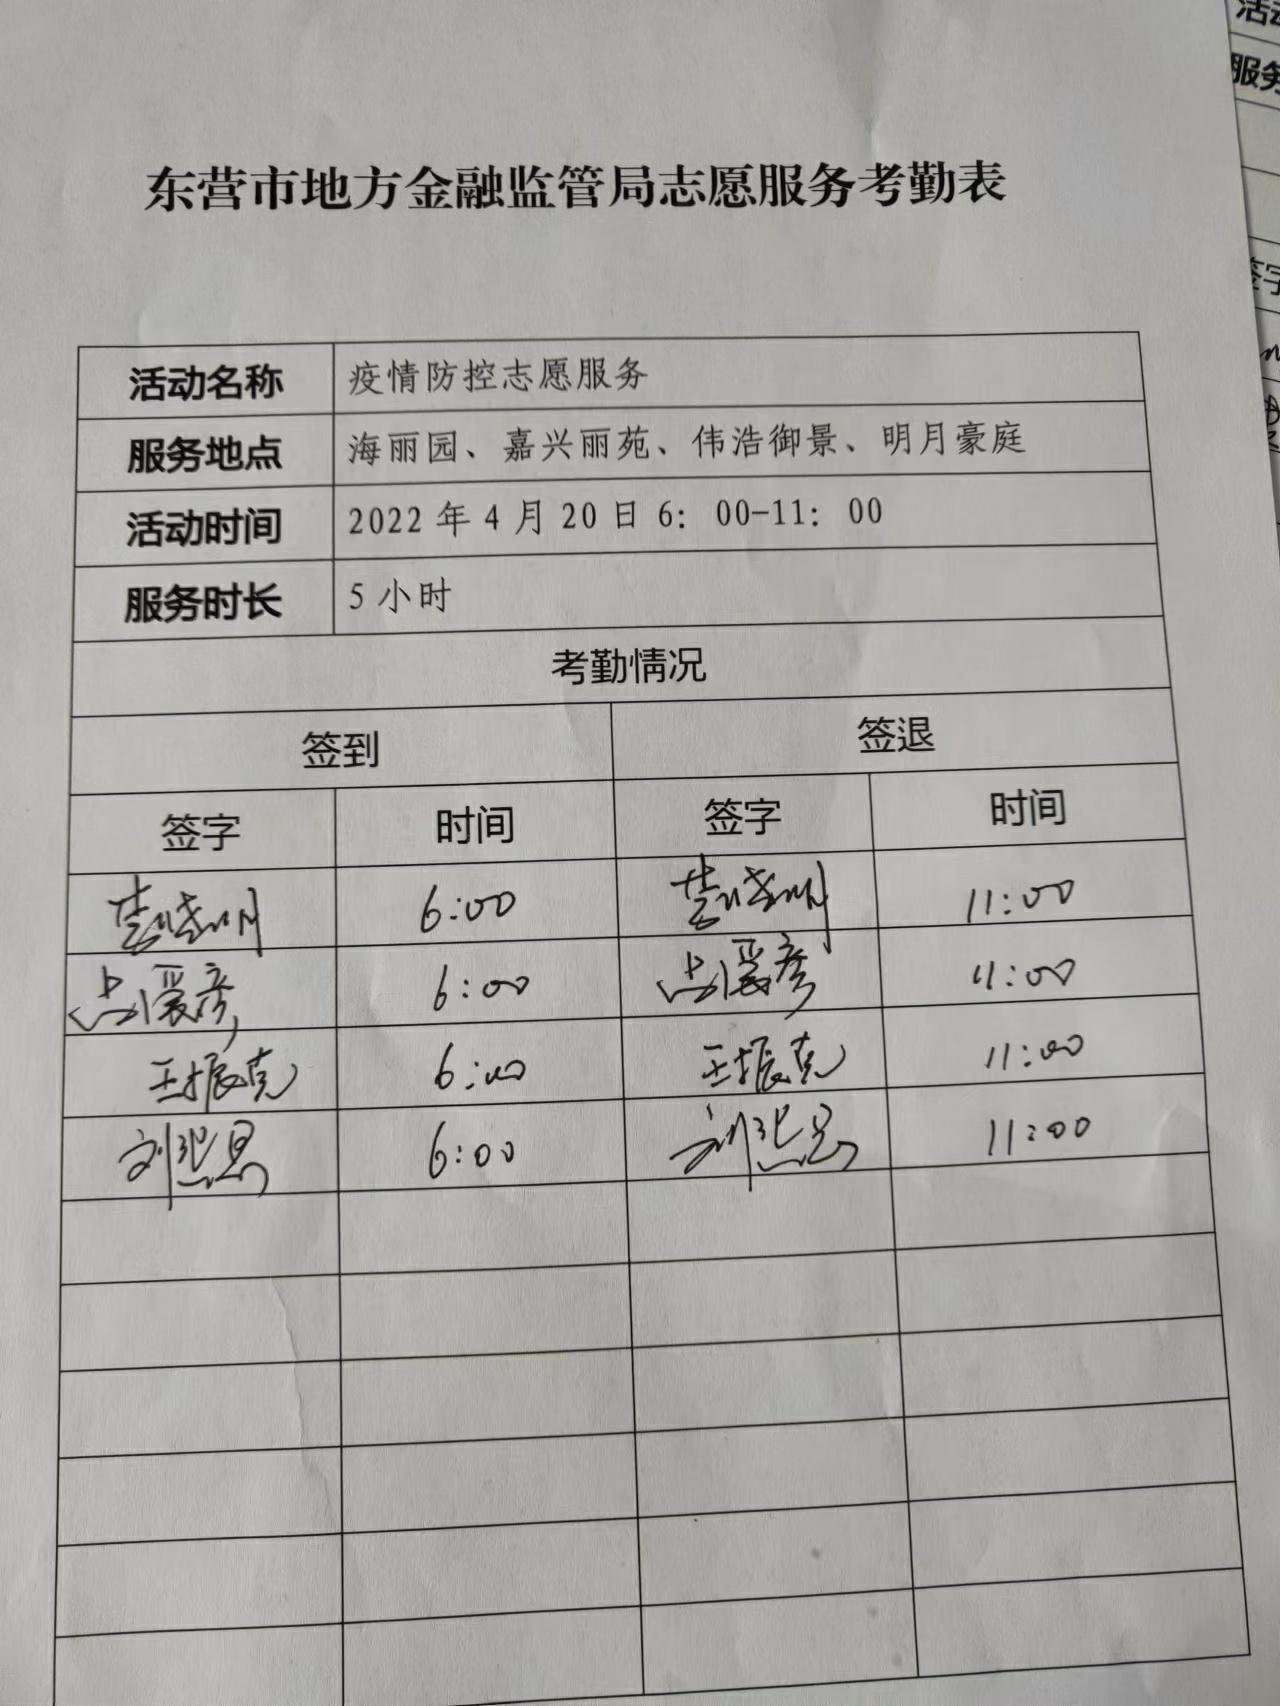 东营市地方金融监管局志愿服务考勤表
活动名称 疫情防控志愿服务
服务地点 海丽园、嘉兴丽苑、伟浩御景、明月豪庭
活动时间 2022年4月20日6：00-11：00
服务时长 5小时
考勤情况
签到 签退
签字 时间 签字 时间
6:00 11:00
6:00 11:00
王振克 6:00 王振克 11:00
刘 6:00 刘 11:00
活动
服务
签字